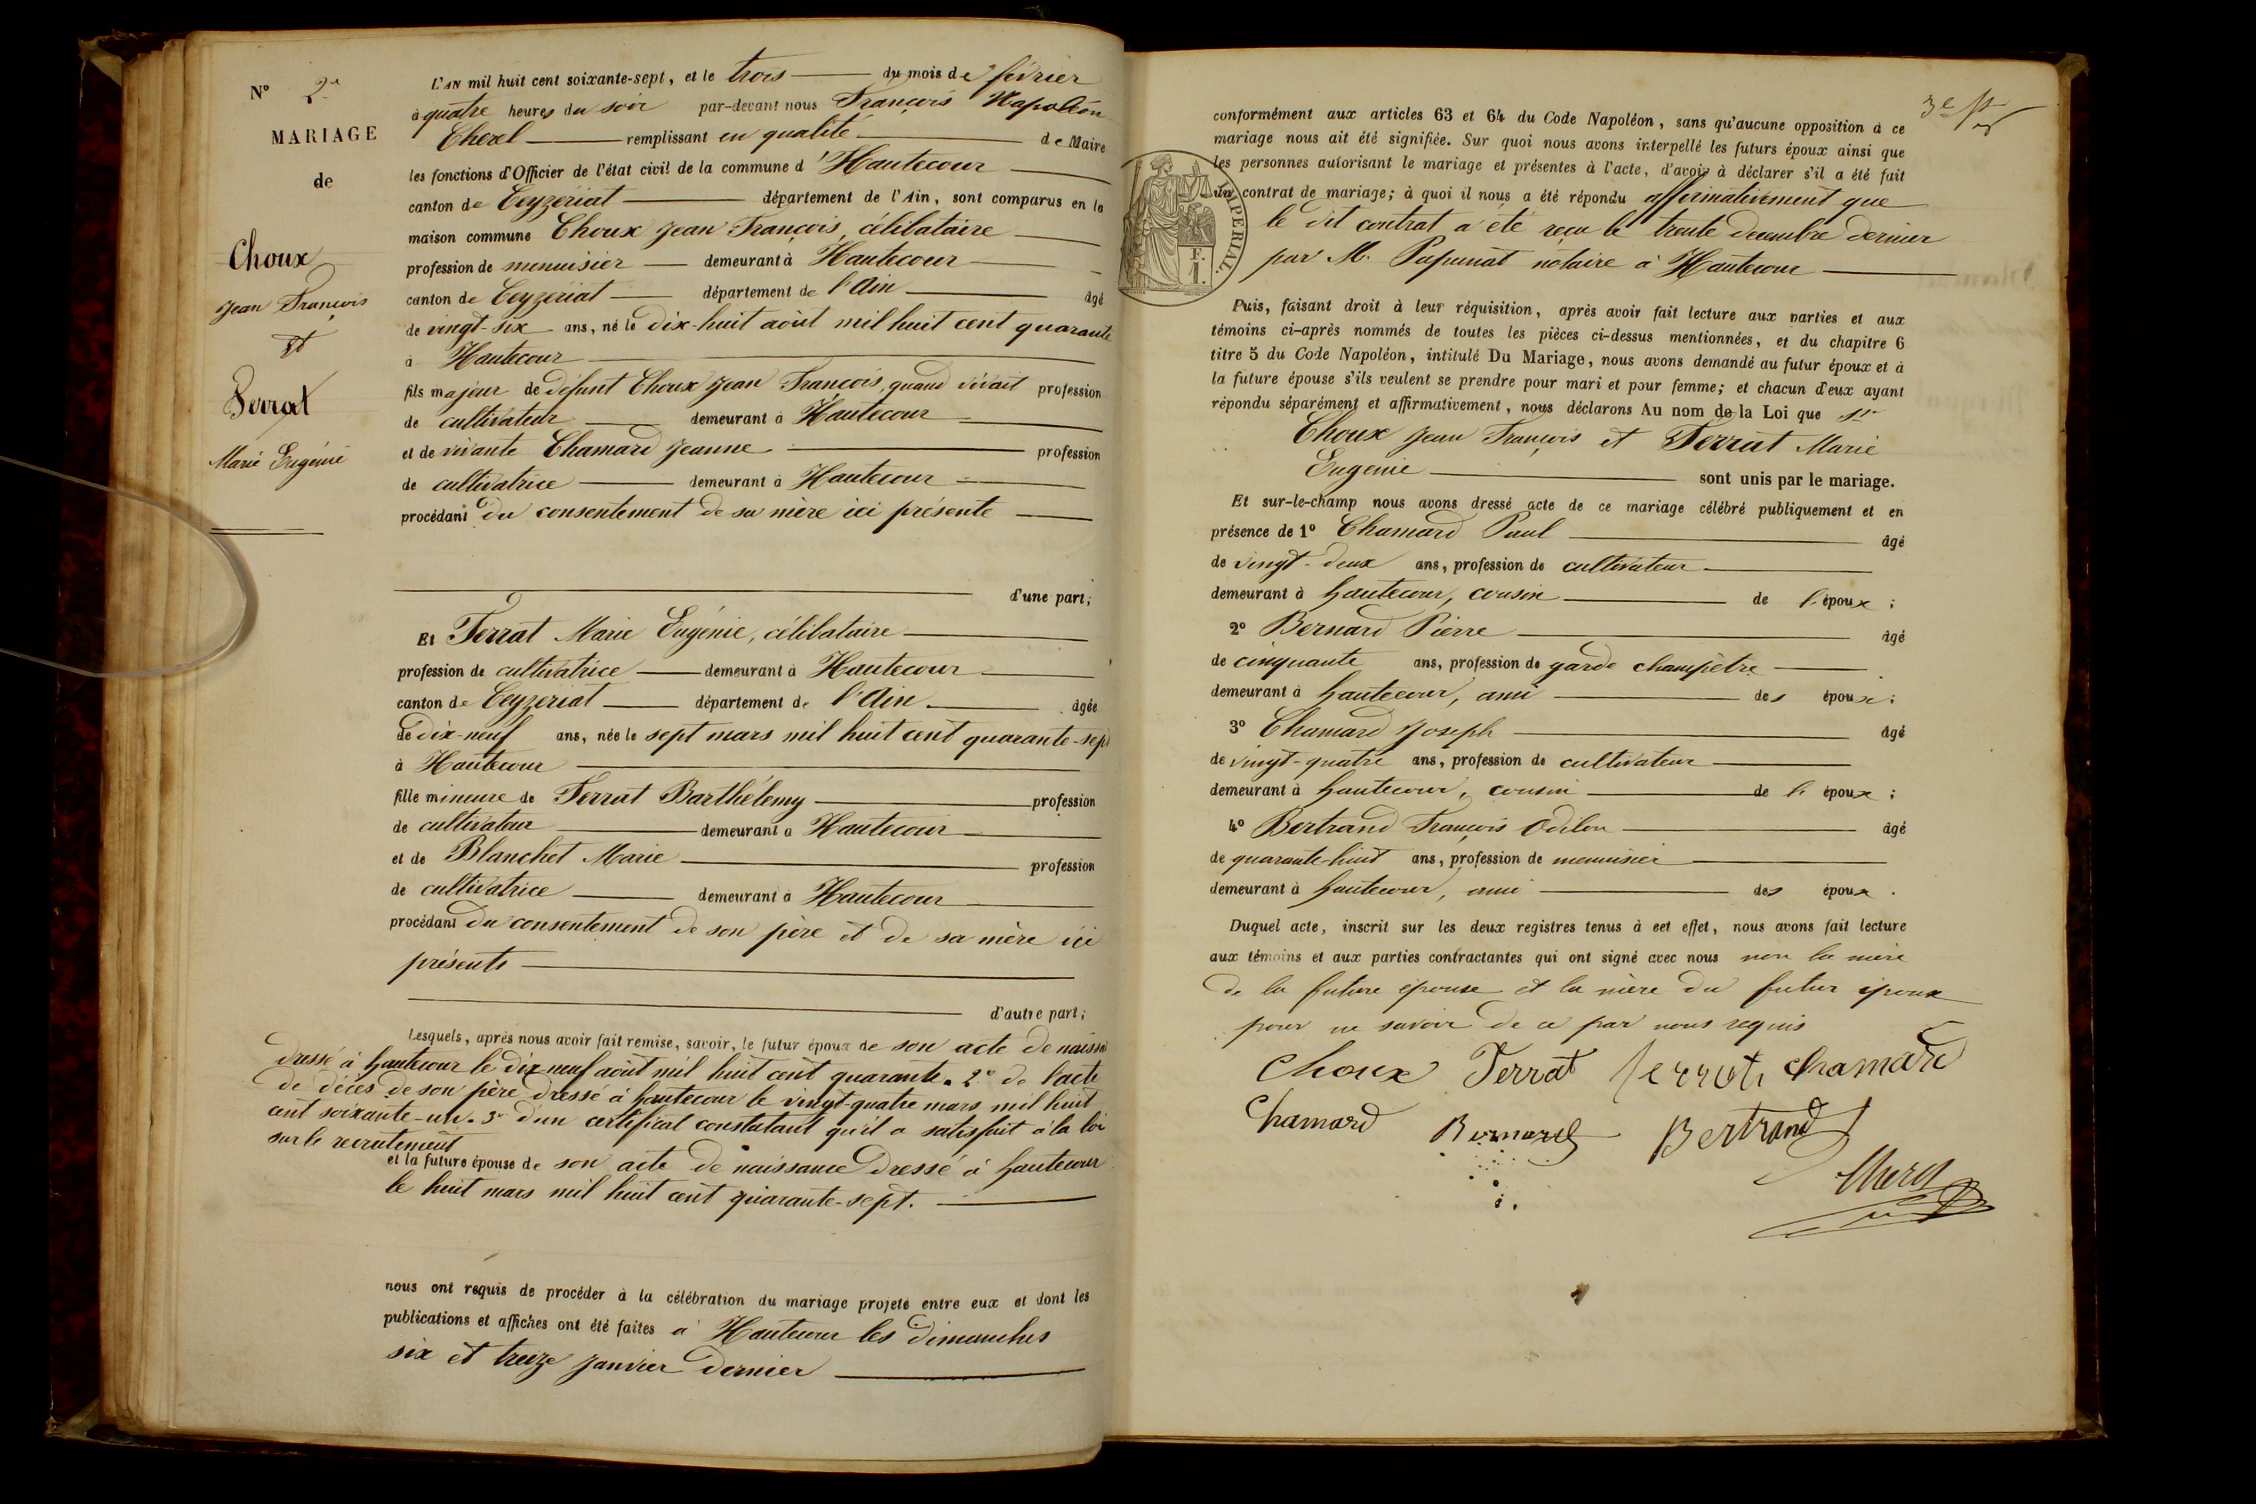 N° 2e
MARIAGE
de
Choux
Jean François
et
Ferrat
Marie Eugénie
L'AN mil huit cent soixante-sept, et le trois du mois de février
à quatre heures du soir par-devant nous François Napoléon
Cherel remplissant en qualité de Maire
les fonctions d'Officier de l'état civil de la commune d'Hautecour
canton de Ceyzériat département de l'Ain, sont comparus en la
maison commune Choux Jean François, célibataire
profession de menuisier demeurant à Hautecour
canton de Ceyzériat département de l'Ain âgé
de vingt-six ans, né le dix-huit août mil huit cent quarante
à Hautecour
fils majeur de défunt Choux Jean François, quand vivait profession
de cultivateur demeurant à Hautecour
et de vivante Chamard Jeanne profession
de cultivatrice demeurant à Hautecour
procédant du consentement de sa mère ici présente
d'une part;
Et Ferrat Marie Eugénie, célibataire
profession de cultivatrice demeurant à Hautecour
canton de Ceyzériat département de l'Ain âgée
de dix-neuf ans, née le sept mars mil huit cent quarante-sept
à Hautecour
fille mineure de Ferrat Barthélemy profession
de cultivateur demeurant à Hautecour
et de Blanchet Marie profession
de cultivatrice demeurant à Hautecour
procédant du consentement de son père et de sa mère ici
présents
d'autre part;
Lesquels, après nous avoir fait remise, savoir, le futur époux de son acte de naissa
dressé à hautecour le dix neuf août mil huit cent quarante. 2° de l'acte
de décès de son père dressé à hautecour le vingt-quatre mars mil huit
cent soixante-un. 3° d'un certificat constatant qu'il a satisfait à la loi
sur le recrutement
et la future épouse de son acte de naissance dressé à hautecour
le huit mars mil huit cent quarante-sept.
nous ont requis de procéder à la célébration du mariage projeté entre eux et dont les
publications et affiches ont été faites à Hautecour les dimanches
six et treize janvier dernier
conformément aux articles 63 et 64 du Code Napoléon, sans qu'aucune opposition à ce
mariage nous ait été signifiée. Sur quoi nous avons interpellé les futurs époux ainsi que
les personnes autorisant le mariage et présentes à l'acte, d'avoir à déclarer s'il a été fait
un contrat de mariage; à quoi il nous a été répondu affirmativement que
le dit contrat a été reçu le trente décembre dernier
par M. Papunat notaire à Hautecour
IMPERIAL.
F.
1.
Puis, faisant droit à leur réquisition, après avoir fait lecture aux parties et aux
témoins ci-après nommés de toutes les pièces ci-dessus mentionnées, et du chapitre 6
titre 5 du Code Napoléon, intitulé Du Mariage, nous avons demandé au futur époux et à
la future épouse s'ils veulent se prendre pour mari et pour femme; et chacun d'eux ayant
répondu séparément et affirmativement, nous déclarons Au nom de la Loi que
Choux Jean François et Ferrat Marie
Eugénie sont unis par le mariage.
Et sur-le-champ nous avons dressé acte de ce mariage célébré publiquement et en
présence de 1° Chamard Paul âgé
de vingt-deux ans, profession de cultivateur
demeurant à hautecour, cousin de l'époux;
2° Bernard Pierre âgé
de cinquante ans, profession de garde champêtre
demeurant à hautecour, ami des époux;
3° Chamard Joseph âgé
de vingt-quatre ans, profession de cultivateur
demeurant à hautecour, cousin de l'époux;
4° Bertrand François Odilon âgé
de quarante-huit ans, profession de menuisier
demeurant à hautecour, ami des époux.
Duquel acte, inscrit sur les deux registres tenus à cet effet, nous avons fait lecture
aux témoins et aux parties contractantes qui ont signé avec nous non la mère
de la future épouse et la mère du futur époux
pour ne savoir de ce par nous requis
Choux Ferrat ferrat chamard
Chamard Bernard Bertrand
Cherel